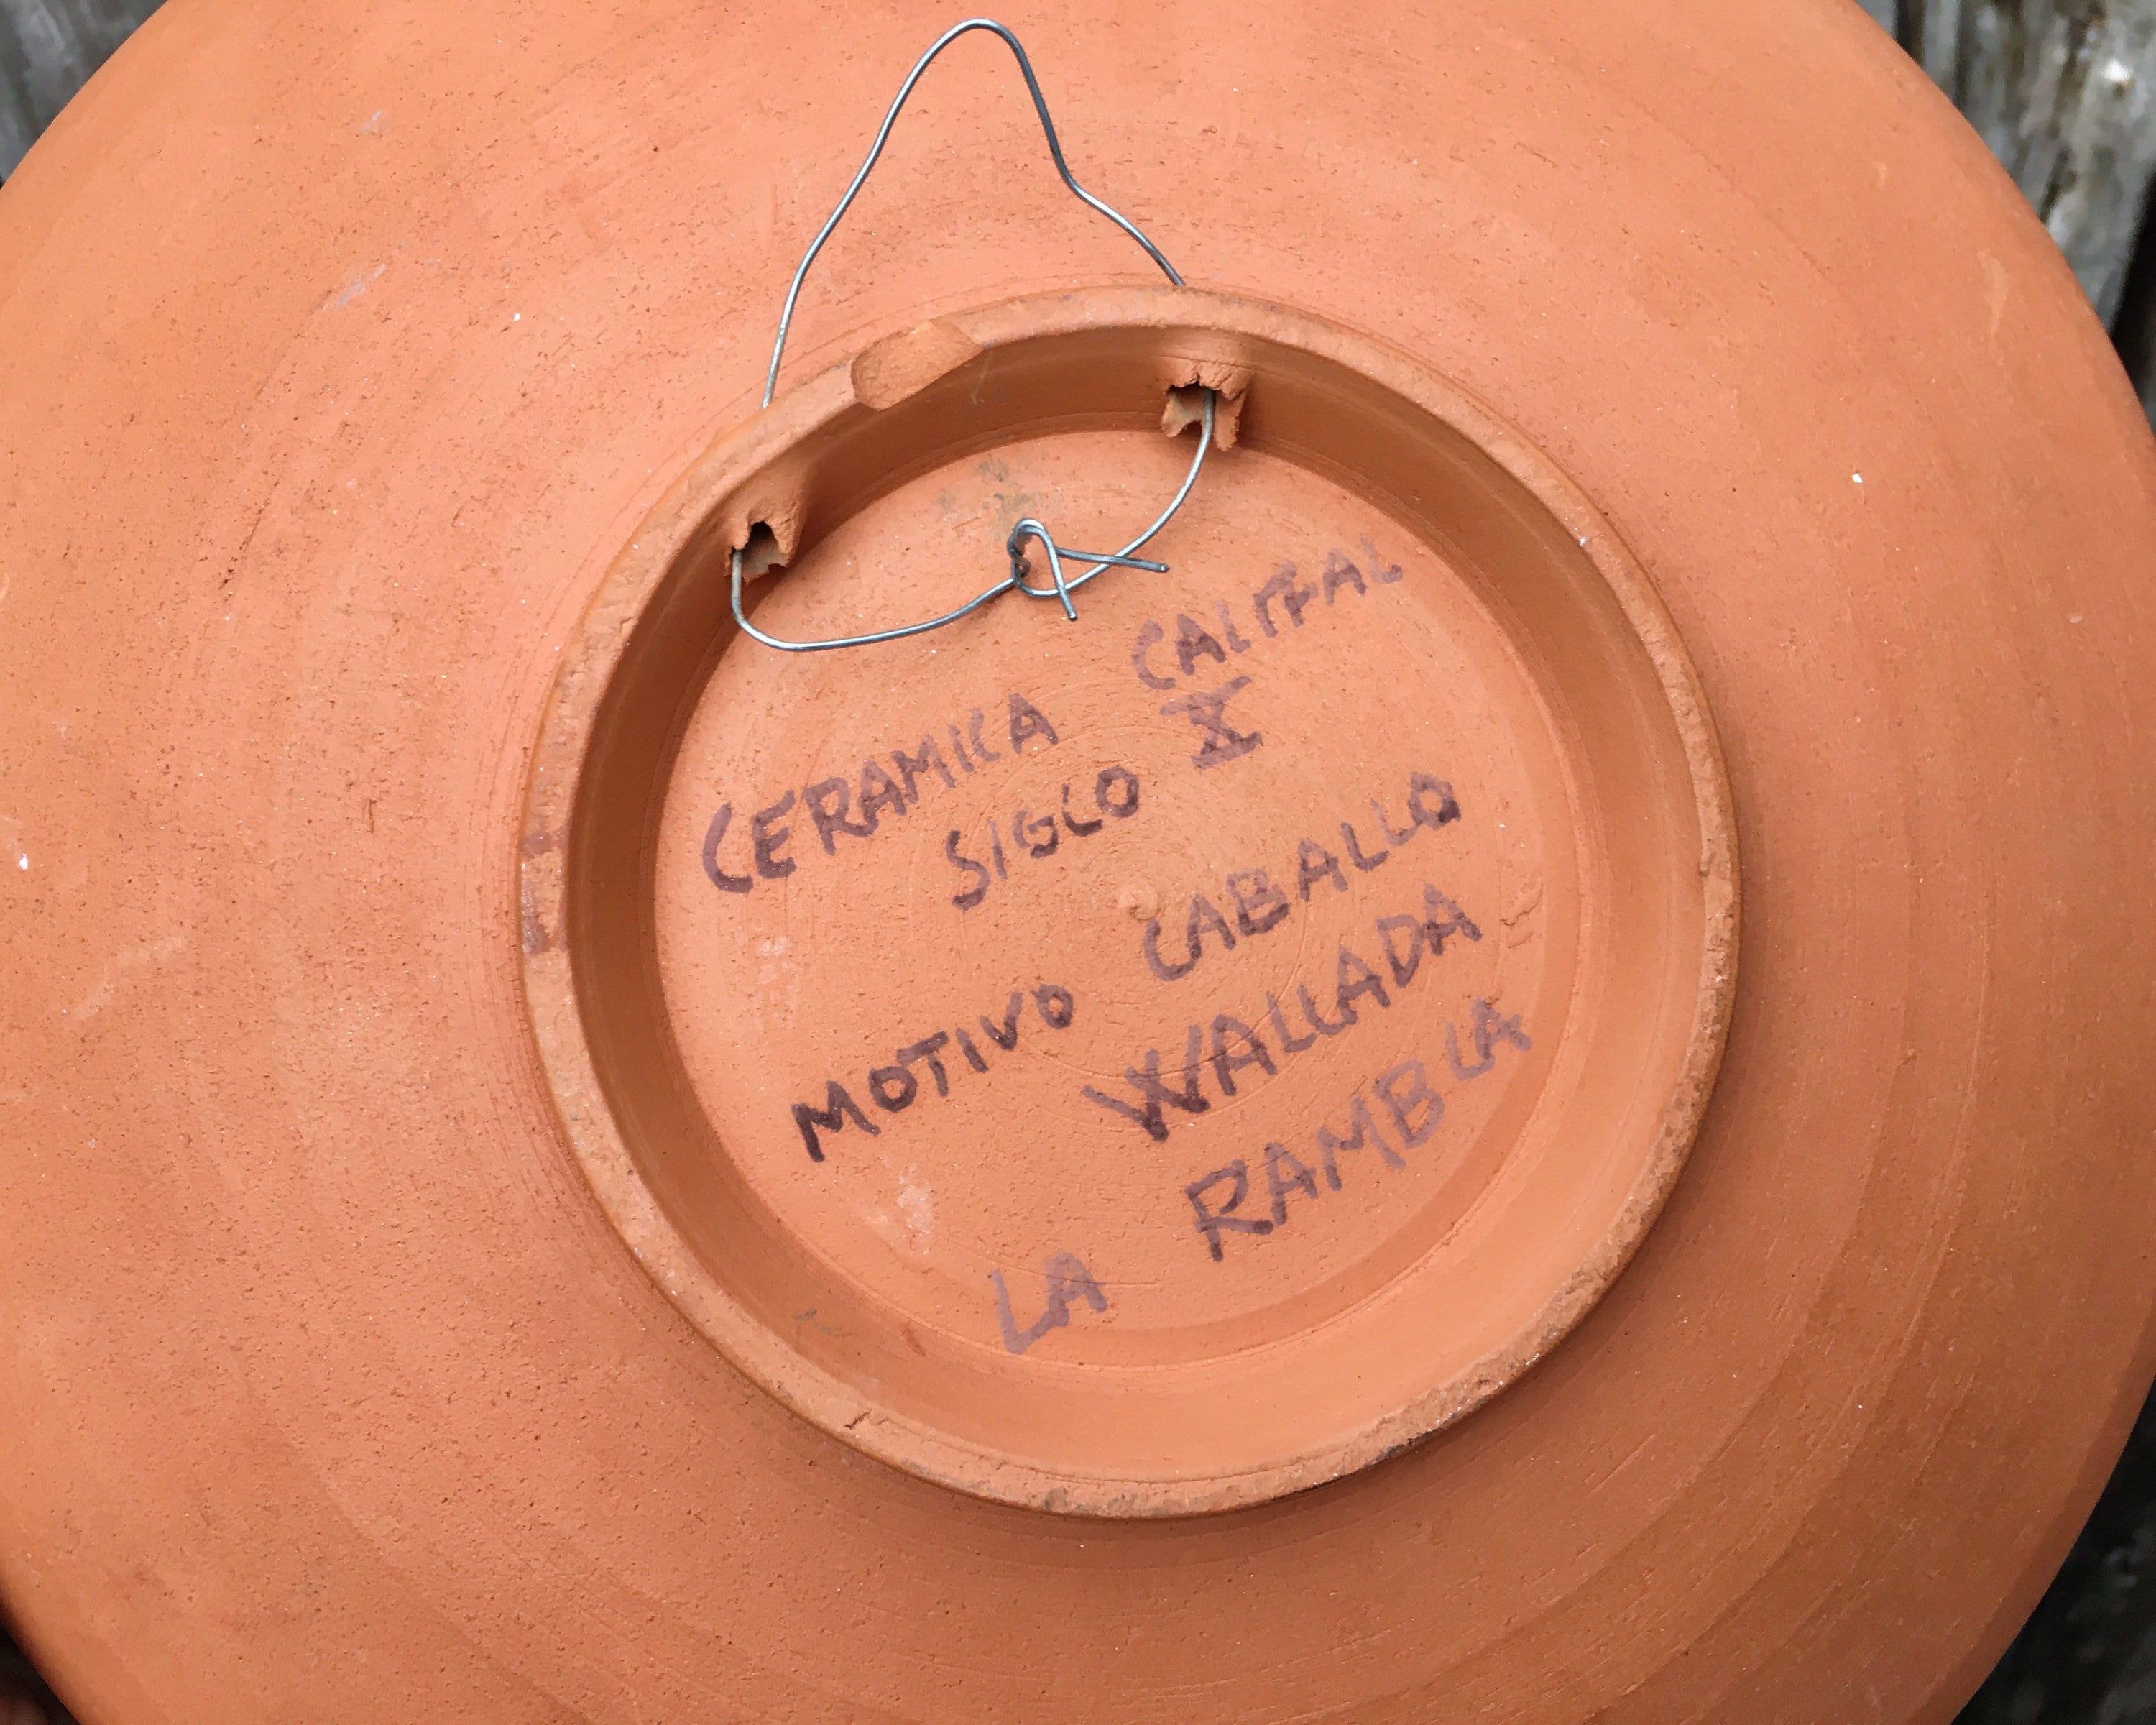 CERAMICA CALIFAL
SIGLO X
MOTIVO CABALLO
WALLADA
LA RAMBLA